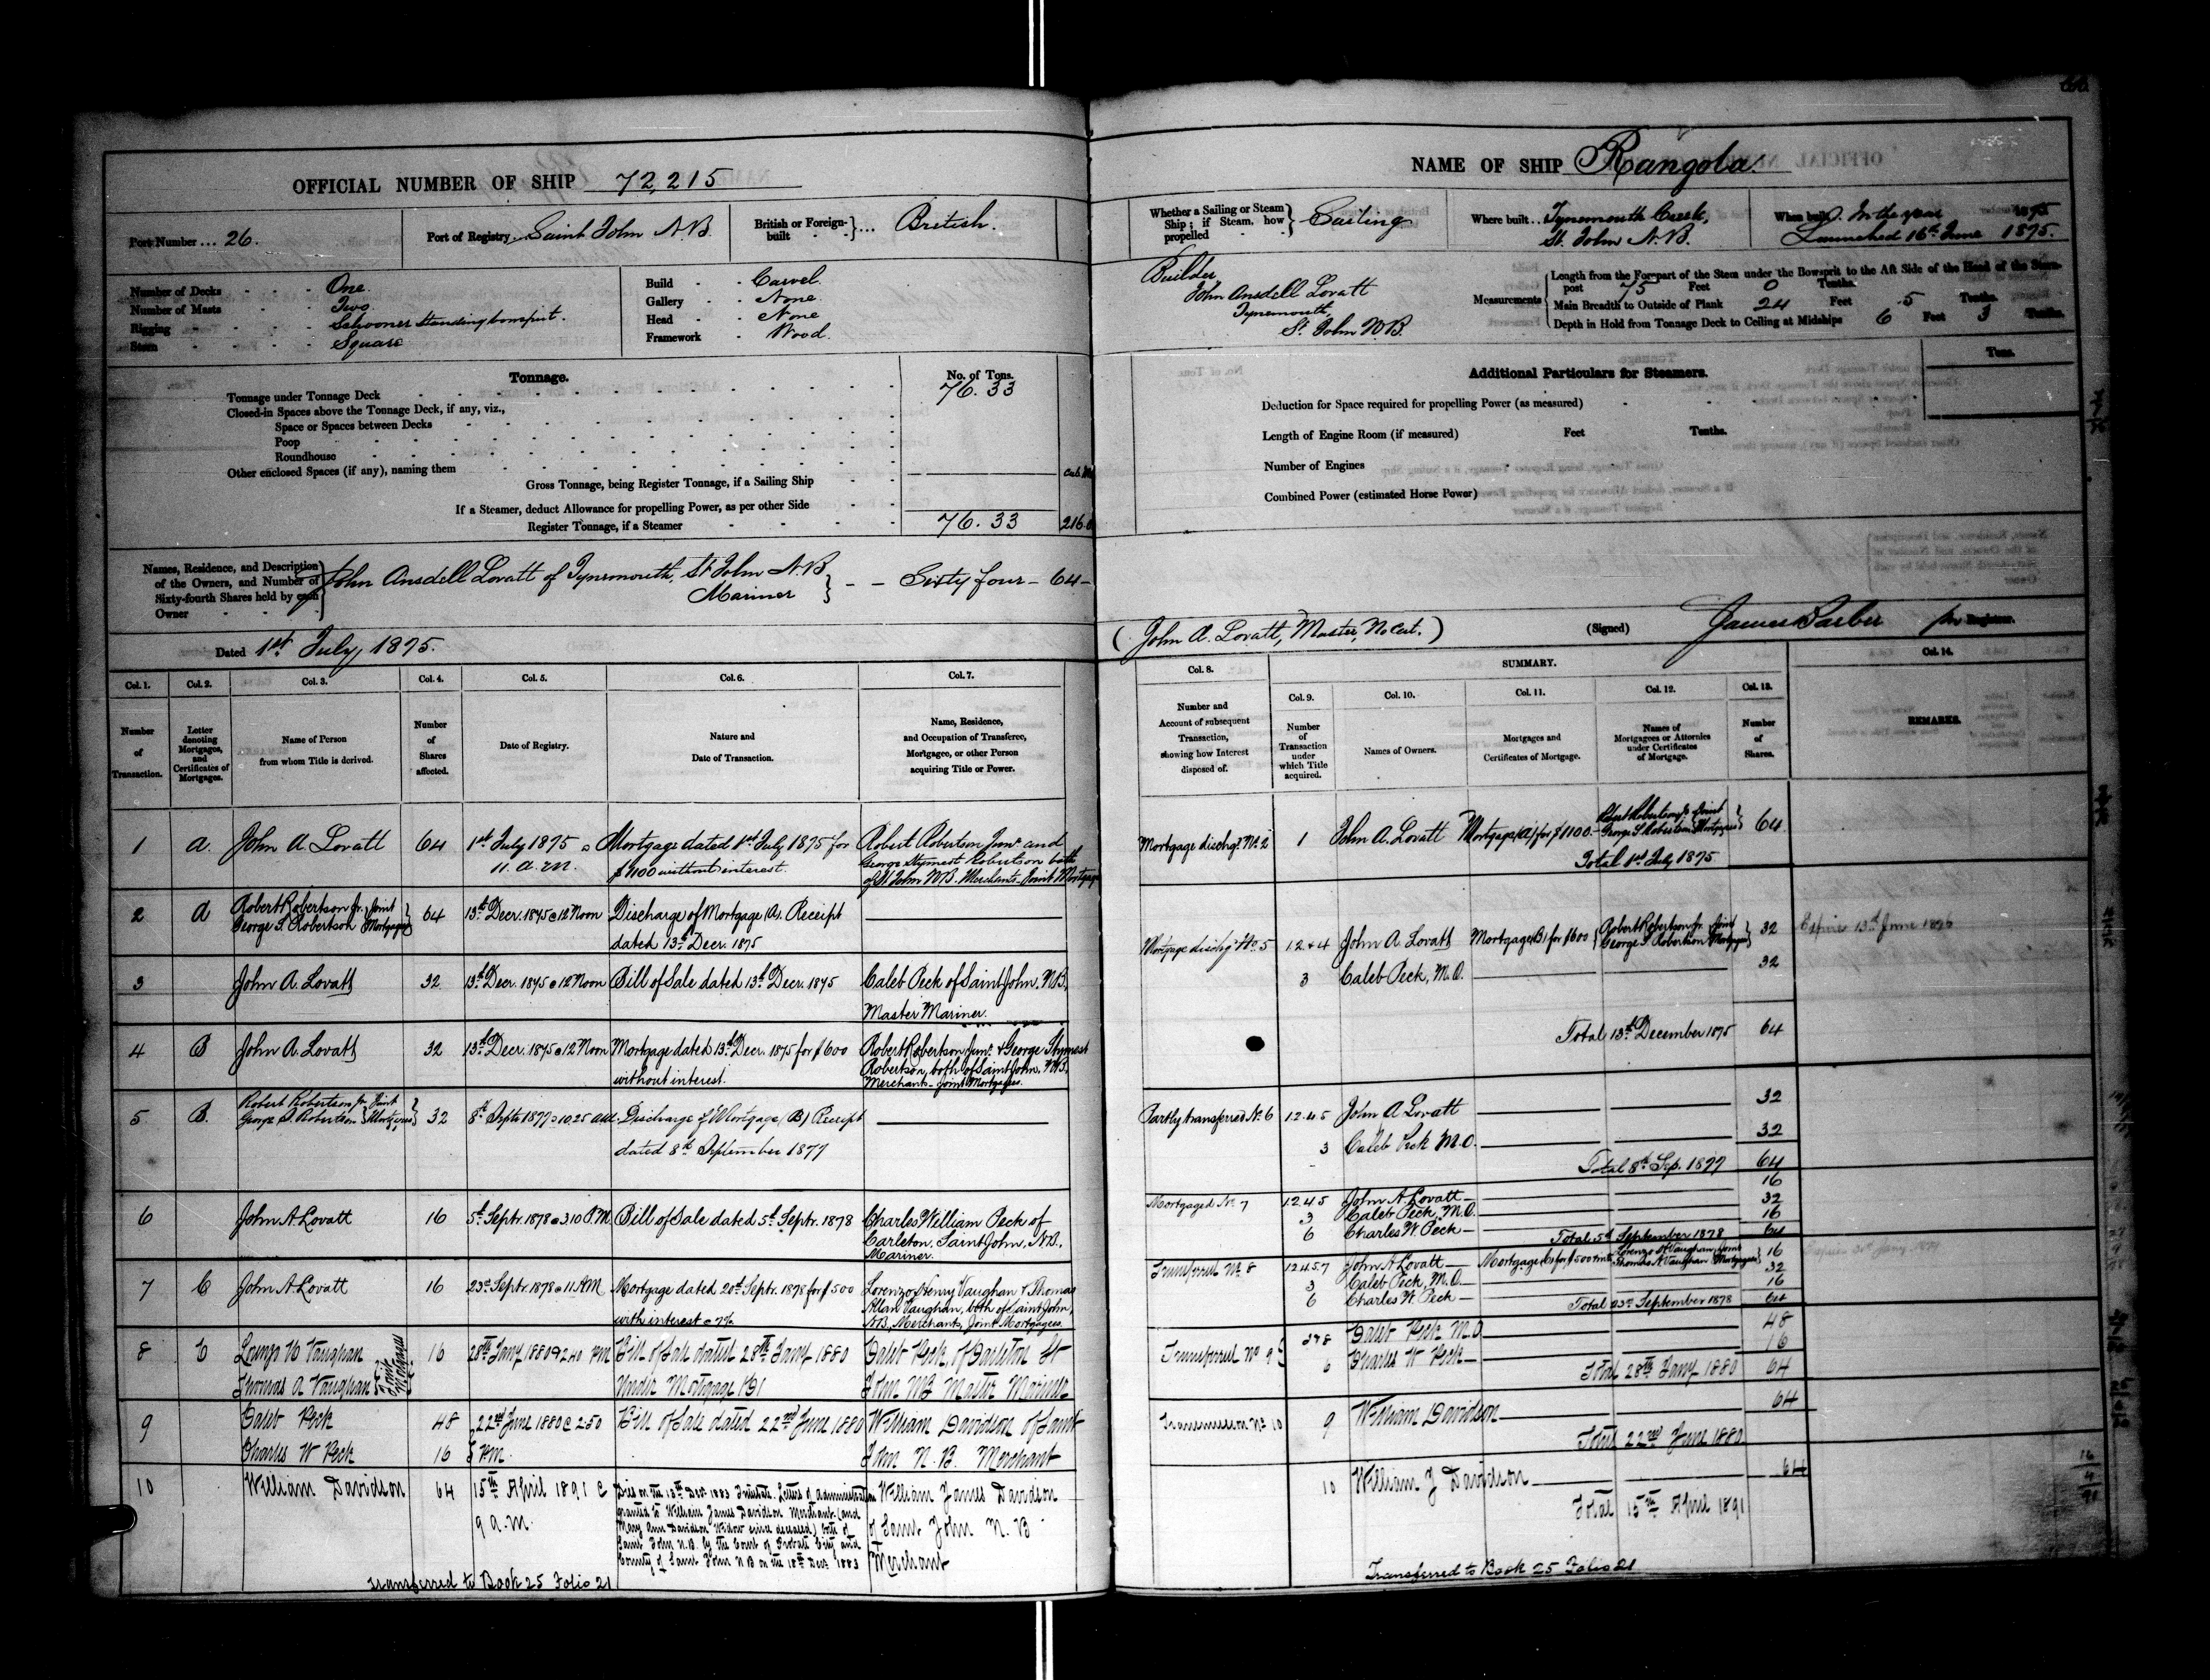 OFFICIAL NUMBER OF SHIP 72,215
Port Number ... 26.
Port of Registry. Saint John N.B.
British or Foreign-built } ... British.
Number of Decks - - - One
Number of Masts - - - Two
Rigging - - - Schooner Standing bowsprit.
Stern - - - Square
Build - - Carvel
Gallery - - None
Head - - None
Framework - Wood.
Tonnage.
No. of Tons.
Tonnage under Tonnage Deck 76.33
Closed-in Spaces above the Tonnage Deck, if any, viz.,
Space or Spaces between Decks
Poop
Roundhouse
Other enclosed Spaces (if any), naming them
Gross Tonnage, being Register Tonnage, if a Sailing Ship
If a Steamer, deduct Allowance for propelling Power, as per other Side
Register Tonnage, if a Steamer 76.33
Names, Residence, and Description
of the Owners, and Number of
Sixty-fourth Shares held by each
Owner
John Ansdell Lovatt of Tynemouth, St John N.B
Mariner } - - Sixty four - 64 -
Dated 1st July, 1875.
Col. 1. Col. 2. Col. 3. Col. 4. Col. 5. Col. 6. Col. 7.
Number of Transaction.
Letter denoting Mortgages, and Certificates of Mortgages.
Name of Person from whom Title is derived.
Number of Shares affected.
Date of Registry.
Nature and Date of Transaction.
Name, Residence, and Occupation of Transferee, Mortgagee, or other Person acquiring Title or Power.
1 a. John A Lovatt 64 1st July 1875 @ Mortgage dated 1st July 1875 for Robert Robertson Junr and
11. a.m. $1100 without interest. George Stymest Robertson both
of St John N.B. Merchants - Joint Mortgagees
2 a Robert Robertson Jr. } Joint 64 13th Decr. 1875 @ 12 Noon Discharge of Mortgage (A). Receipt
George S. Robertson } Mortgagees dated 13th Decr. 1875
3 John A. Lovatt 32 13th Decr. 1875 @ 12 Noon Bill of Sale dated 13th Decr. 1875 Caleb Peck of Saint John. N.B.
Master Mariner.
4 B John A. Lovatt 32 13th Decr. 1875 @ 12 Noon Mortgage dated 13th Decr. 1875 for $600 Robert Robertson Junr. & George Stymest
without interest. Robertson, both of Saint John. N.B.
Merchants - Joint Mortgagees.
5 B. Robert Robertson Jr. Joint
George S. Robertson } Mortgagees 32 8th Septr 1877 @ 10.25 a.m. Discharge of Mortgage (B) Receipt
dated 8th September 1877
6 John A. Lovatt 16 5th Septr. 1878 @ 3.10 P.M. Bill of Sale dated 5th Septr. 1878 Charles William Peck of
Carleton, Saint John, N.B.
Mariner.
7 C John A. Lovatt 16 23rd Septr. 1878 @ 11 A.M Mortgage dated 20th Septr. 1878 for $500 Lorenzo Henry Vaughan & Thomas
with interest @ 7% Allan Vaughan, both of Saint John,
N.B., Merchants, Joint Mortgagees.
8 C Lorenzo H Vaughan 16 28th Jany 1880 @ 2.40 PM Bill of Sale dated 28th Jany 1880 Caleb Peck, of Carleton St
Thomas A Vaughan } Joint Mortgagees Under Mortgage (C) John NB Master Mariner
9 Caleb Peck 48 22nd June 1880 @ 2.50 Bill of Sale dated 22nd June 1880 William Davidson of Saint
Charles W Peck 16 P.M. John N.B. Merchant
10 William Davidson 64 15th April 1891 @ Died on the 13th Decr 1883 Intestate. Letters of administration William James Davidson
9 a.m. granted to William James Davidson Merchant (and of Saint John N.B
Mary Ann Davidson Widow since deceased) both of Merchant
Saint John N.B. by the Court of Probate City and
County of Saint John N B on the 18th Decr 1883
Transferred to Book 25 Folio 21
NAME OF SHIP Rangola.
Whether a Sailing or Steam
Ship; if Steam, how
propelled } Sailing
Where built ... Tynemouth Creek,
St. John N.B.
When built. In the year 1875
Launched 16th June 1875.
Builder,
John Ansdell Lovatt
Tynemouth,
St. John N.B
Measurements
Length from the Forepart of the Stem under the Bowsprit to the Aft Side of the Head of the Stern-
post 75 Feet 0 Tenths.
Main Breadth to Outside of Plank 24 Feet 5 Tenths.
Depth in Hold from Tonnage Deck to Ceiling at Midships 6 Feet 3 Tenths.
Additional Particulars for Steamers.
Tons.
Deduction for Space required for propelling Power (as measured)
Length of Engine Room (if measured) Feet Tenths.
Number of Engines
Combined Power (estimated Horse Power)
( John A. Lovatt, Master, No Cert. ) (Signed) James Barber Registrar.
SUMMARY.
Col. 8. Col. 9. Col. 10. Col. 11. Col. 12. Col. 13. Col. 14.
Number and Account of subsequent Transaction, showing how Interest disposed of.
Number of Transaction under which Title acquired.
Names of Owners.
Mortgages and Certificates of Mortgage.
Names of Mortgagees or Attornies under Certificates of Mortgage.
Number of Shares.
REMARKS.
Mortgage dischgd. No. 2 1 John A. Lovatt Mortgage (A) for $1100 - Robert Robertson Jr Joint
George S. Robertson } Mortgagees } 64
Total 1st July 1875
Mortgage dischgd No. 5 1.2 & 4 John A. Lovatt Mortgage (B) for $600 { Robert Robertson Jr. Joint
George S. Robertson } Mortgagees } 32 Expires 13th June 1876
3 Caleb Peck, M.O. 32
Total 13th December 1875 64
Partly transferred No. 6 1.2.4.5 John A Lovatt 32
3 Caleb Peck M.O. 32
Total 8th Sep. 1877 64
Mortgaged No. 7 1.2.4.5 John A. Lovatt 16
3 Caleb Peck, M.O. 32
6 Charles W. Peck 16
Total 5th September 1878 64
Transferred No. 8 1.2.4.5.7 John A. Lovatt Mortgage (C) for $500 Lorenzo H. Vaughan, Joint
Thomas A. Vaughan } Mortgagees } 16
3 Caleb Peck, M.O. 32
6 Charles W. Peck 16
Total 23rd September 1878 64
Transferred No 9 3 & 8 Caleb Peck M.O 48
6 Charles W Peck 16
Total 28th Jany 1880 64
Transmission No. 10 9 William Davidson 64
Total 22nd June 1880
10 William J Davidson 64
Total 15th April 1891
Transferred to Book 25 Folio 21